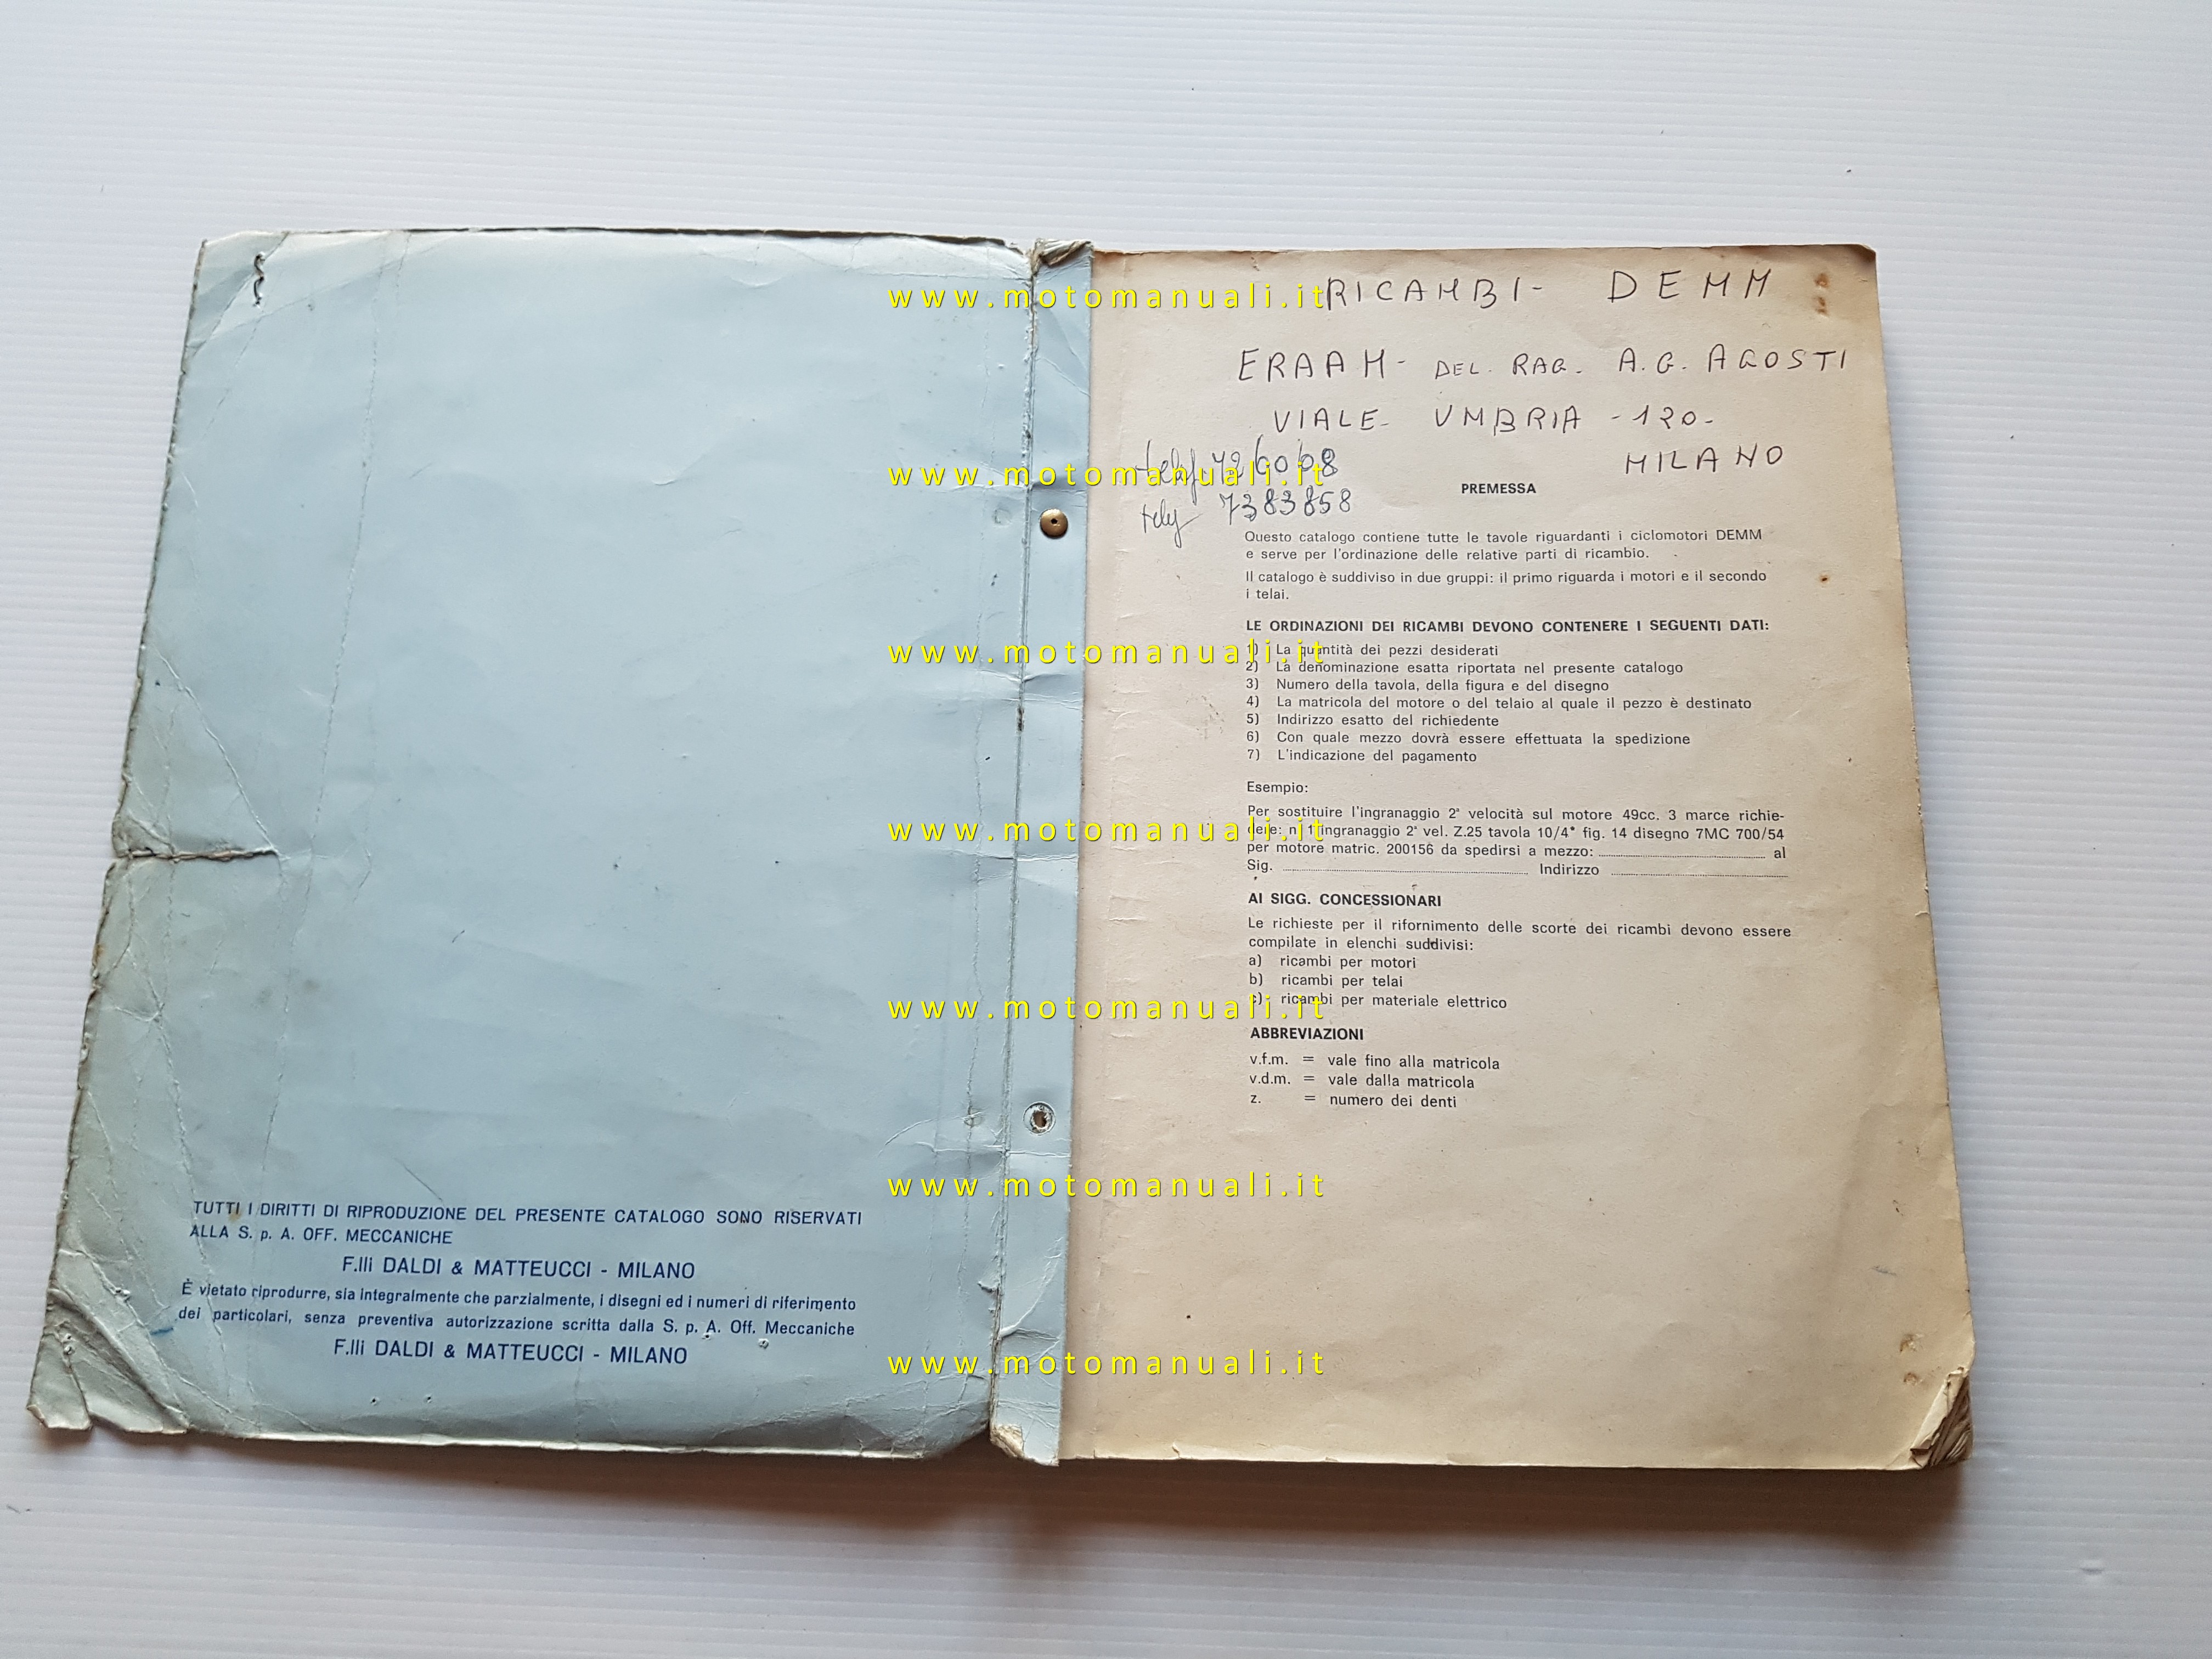 TUTTI I DIRITTI DI RIPRODUZIONE DEL PRESENTE CATALOGO SONO RISERVATI
ALLA S. p. A. OFF. MECCANICHE
F.lli DALDI & MATTEUCCI - MILANO
È vietato riprodurre, sia integralmente che parzialmente, i disegni ed i numeri di riferimento
dei particolari, senza preventiva autorizzazione scritta dalla S. p. A. Off. Meccaniche
F.lli DALDI & MATTEUCCI - MILANO
RICAMBI - DEMM
ERAAM - DEL RAG. A.G. AGOSTI
VIALE - UMBRIA - 120 -
MILANO
7383858
PREMESSA
Questo catalogo contiene tutte le tavole riguardanti i ciclomotori DEMM
e serve per l'ordinazione delle relative parti di ricambio.
Il catalogo è suddiviso in due gruppi: il primo riguarda i motori e il secondo
i telai.
LE ORDINAZIONI DEI RICAMBI DEVONO CONTENERE I SEGUENTI DATI:
1) La quantità dei pezzi desiderati
2) La denominazione esatta riportata nel presente catalogo
3) Numero della tavola, della figura e del disegno
4) La matricola del motore o del telaio al quale il pezzo è destinato
5) Indirizzo esatto del richiedente
6) Con quale mezzo dovrà essere effettuata la spedizione
7) L'indicazione del pagamento
Esempio:
Per sostituire l'ingranaggio 2ª velocità sul motore 49cc. 3 marce richie-
dere: n. 1 ingranaggio 2ª vel. Z.25 tavola 10/4* fig. 14 disegno 7MC 700/54
per motore matric. 200156 da spedirsi a mezzo: al
Sig. Indirizzo
AI SIGG. CONCESSIONARI
Le richieste per il rifornimento delle scorte dei ricambi devono essere
compilate in elenchi suddivisi:
a) ricambi per motori
b) ricambi per telai
c) ricambi per materiale elettrico
ABBREVIAZIONI
v.f.m. = vale fino alla matricola
v.d.m. = vale dalla matricola
z. = numero dei denti
www.motomanuali.it
www.motomanuali.it
www.motomanuali.it
www.motomanuali.it
www.motomanuali.it
www.motomanuali.it
www.motomanuali.it